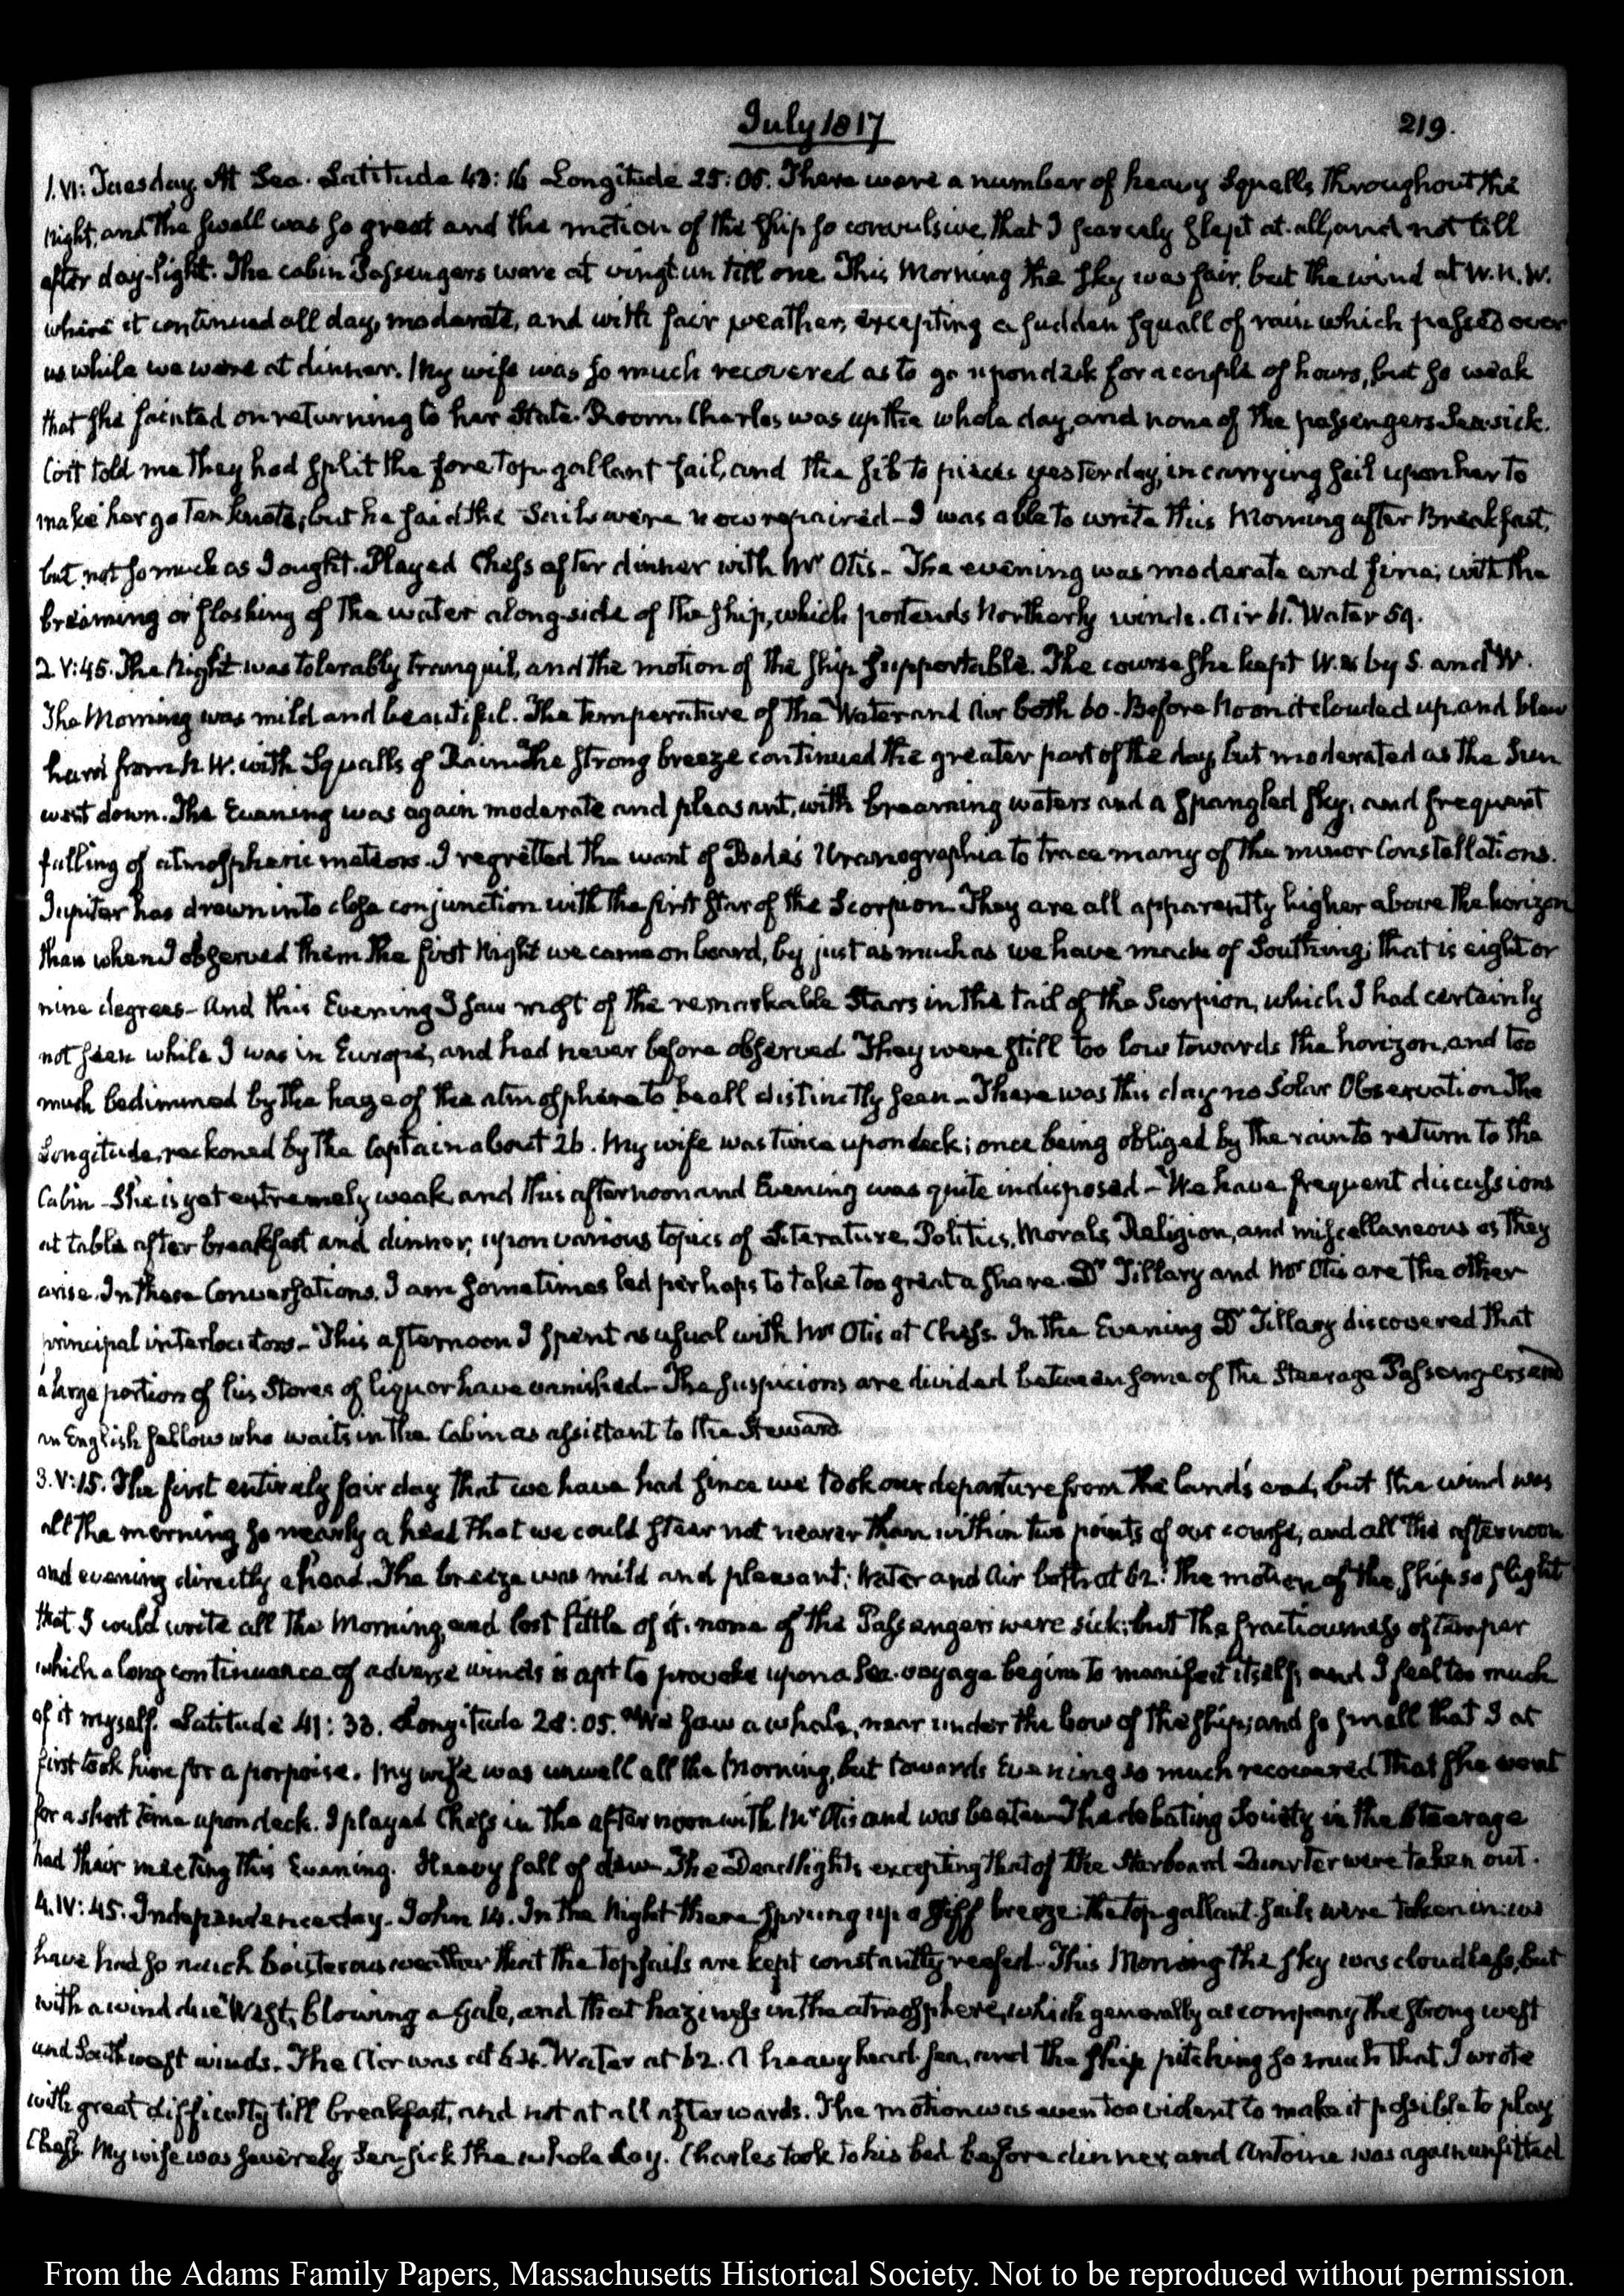 July 1817
219.
1. VI: Tuesday. At Sea. Latitude 43:16 Longitude 25:05. There were a number of heavy Squalls throughout the
Night, and the swell was so great and the motion of the ship so convulsive, that I scarcely slept at all, and not till
after day-light. The cabin Passengers were at vingt-un till one. This Morning the sky was fair, but the wind at W.N.W.
where it continued all day, moderate, and with fair weather, excepting a sudden squall of rain which passed over
us while we were at dinner. My wife was so much recovered as to go upon deck for a couple of hours, but so weak
that she fainted on returning to her State-Room. Charles was up the whole day, and none of the passengers Sea-sick.
Coit told me they had split the fore top-gallant sail, and the jib to pieces yesterday, in carrying sail upon her to
make her go Ten knots; but he said the Sails were now repaired — I was able to write this Morning after Breakfast,
but not so much as I ought. Played Chess after dinner with Mr Otis — The evening was moderate and fine; with the
breaming or flashing of the water along-side of the ship, which portends Northerly winds. Air 61. Water 59.
2. V:45. The Night was tolerably tranquil, and the motion of the ship supportable. The course she kept W. by S. and W.
The Morning was mild and beautiful. The temperature of the Water and Air both 60. Before Noon it clouded up, and blew
hard from N.W. with Squalls of Rain. The strong breeze continued the greater part of the day, but moderated as the Sun
went down. The Evening was again moderate and pleasant, with breaming waters and a spangled sky, and frequent
falling of atmospheric meteors. I regretted the want of Bode's Uranographia to trace many of the minor Constellations.
Jupiter has drawn into close conjunction with the first star of the Scorpion. They are all apparently higher above the horizon
than when I observed them the first Night we came on board, by just as much as we have made of Southing; that is eight or
nine degrees — And this Evening I saw most of the remarkable Stars in the tail of the Scorpion, which I had certainly
not seen while I was in Europe, and had never before observed. They were still too low towards the horizon, and too
much bedimmed by the haze of the atmosphere to be all distinctly seen — There was this day no Solar Observation. The
Longitude, reckoned by the Captain about 26. My wife was twice upon deck; once being obliged by the rain to return to the
Cabin — She is yet extremely weak, and this afternoon and Evening was quite indisposed — We have frequent discussions
at table after breakfast and dinner, upon various topics of Literature, Politics, Morals, Religion, and miscellaneous as they
arise. In these Conversations, I am sometimes led perhaps to take too great a share. Dr Tillary and Mr Otis are the other
principal interlocutors — This afternoon I spent as usual with Mr Otis at Chess. In the Evening Dr Tillary discovered that
a large portion of his Stores of liquor have vanished — The suspicions are divided between some of the Steerage Passengers and
an English fellow who waits in the Cabin as assistant to the Steward.
3. V:15. The first entirely fair day that we have had since we took our departure from the land's end; but the wind was
all the morning so nearly a head that we could steer not nearer than within two points of our course, and all the afternoon
and evening directly ahead. The breeze was mild and pleasant; Water and Air both at 62. The motion of the ship so slight
that I could write all the Morning, and lost little of it. none of the Passengers were sick: but the fractiousness of temper
which a long continuance of adverse winds is apt to provoke upon a Sea-voyage begins to manifest itself; and I feel too much
of it myself. Latitude 41:33. Longitude 28:05. We saw a whale, near under the bow of the ship; and so small that I at
first took him for a porpoise. My wife was unwell all the Morning, but towards Evening so much recovered that she went
for a short time upon deck. I played Chess in the afternoon with Mr Otis and was beaten — The debating Society in the Steerage
had their meeting this Evening. Heavy fall of dew — The Dead lights, excepting that of the Starboard Quarter were taken out.
4. IV:45. Independence day. John 14. In the Night there sprung up a stiff breeze: the top-gallant-sails were taken in: we
have had so much boisterous weather that the topsails are kept constantly reefed. This Morning the sky was cloudless, but
with a wind due West, blowing a Gale, and that haziness in the atmosphere, which generally accompany the strong west
and Southwest winds. The Air was at 64. Water at 62. A heavy head sea, and the ship pitching so much that I wrote
with great difficulty till breakfast, and not at all afterwards. The motion was even too violent to make it possible to play
Chess. My wife was severely Sea-sick the whole day. Charles took to his bed before dinner, and Antoine was again unfitted
From the Adams Family Papers, Massachusetts Historical Society. Not to be reproduced without permission.